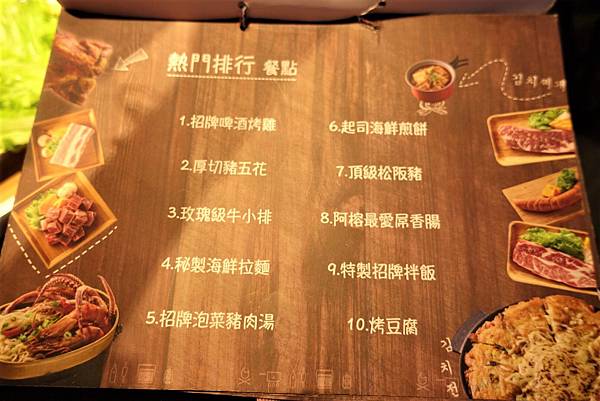 熱門排行 餐點
1.招牌啤酒烤雞
2.厚切豬五花
3.玫瑰級牛小排
4.秘製海鮮拉麵
5.招牌泡菜豬肉湯
6.起司海鮮煎餅
7.頂級松阪豬
8.阿榕最愛屌香腸
9.特製招牌拌飯
10.烤豆腐
김치찌개
김치전